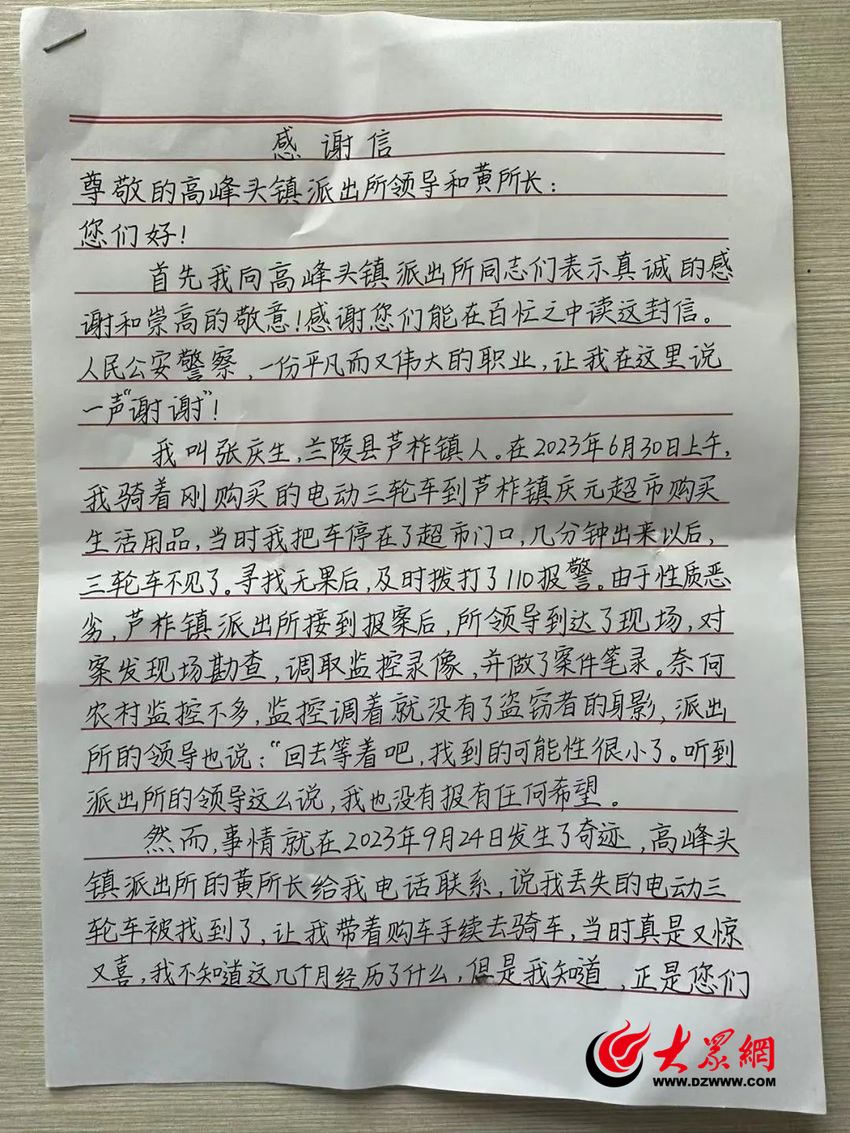 感谢信
尊敬的高峰头镇派出所领导和黄所长：
您们好！
首先我向高峰头镇派出所同志们表示真诚的感
谢和崇高的敬意！感谢您们能在百忙之中读这封信。
人民公安警察，一份平凡而又伟大的职业，让我在这里说
一声“谢谢”！
我叫张庆生，兰陵县芦柞镇人。在2023年6月30日上午，
我骑着刚购买的电动三轮车到芦柞镇庆元超市购买
生活用品，当时我把车停在了超市门口，几分钟出来以后，
三轮车不见了。寻找无果后，及时拨打了110报警。由于性质恶
劣，芦柞镇派出所接到报案后，所领导到达了现场，对
案发现场勘查，调取监控录像，并做了案件笔录。奈何
农村监控不多，监控调着就没有了盗窃者的身影，派出
所的领导也说：“回去等着吧，找到的可能性很小了。听到
派出所的领导这么说，我也没有报有任何希望。
然而，事情就在2023年9月24日发生了奇迹，高峰头
镇派出所的黄所长给我电话联系，说我丢失的电动三
轮车被找到了，让我带着购车手续去骑车，当时真是又惊
又喜，我不知道这几个月经历了什么，但是我知道，正是您们
大眾網
WWW.DZWWW.COM